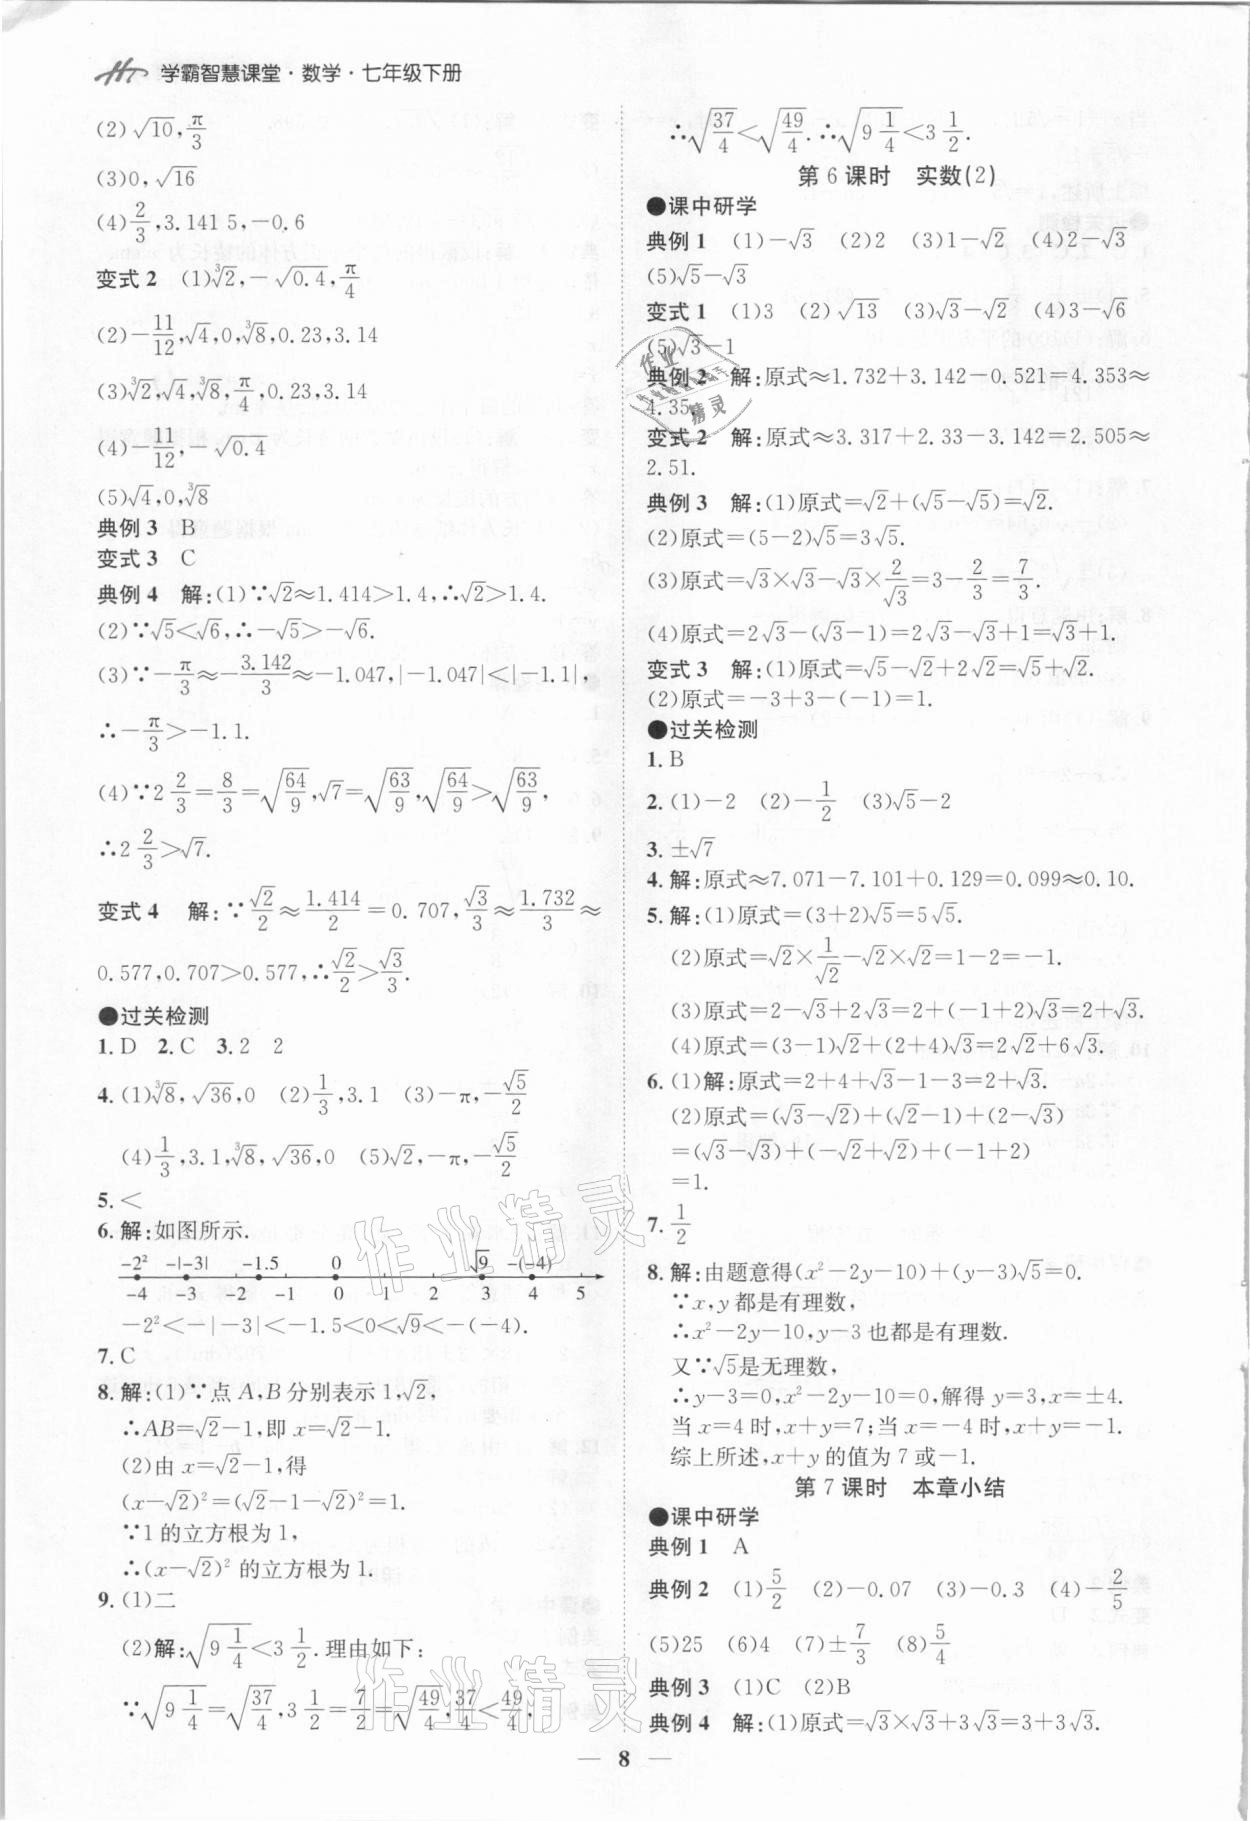 学霸智慧课堂·数学·七年级下册
(2)√10,π/3
(3)0,√16
(4)2/3,3.141 5,-0.6
变式 2 (1)∛2,-√0.4,π/4
(2)-11/12,√4,0,∛8,0.23,3.14
(3)∛2,√4,∛8,π/4,0.23,3.14
(4)-11/12,-√0.4
(5)√4,0,∛8
典例 3 B
变式 3 C
典例 4 解:(1)∵√2≈1.414>1.4,∴√2>1.4.
(2)∵√5<√6,∴-√5>-√6.
(3)∵-π/3≈-3.142/3≈-1.047,|-1.047|<|-1.1|,
∴-π/3>-1.1.
(4)∵2 2/3=8/3=√(64/9),√7=√(63/9),√(64/9)>√(63/9),
∴2 2/3>√7.
变式 4 解:∵√2/2≈1.414/2=0.707,√3/3≈1.732/3≈
0.577,0.707>0.577,∴√2/2>√3/3.
●过关检测
1.D 2.C 3.2 2
4.(1)∛8,√36,0 (2)1/3,3.1 (3)-π,-√5/2
(4)1/3,3.1,∛8,√36,0 (5)√2,-π,-√5/2
5.<
6.解:如图所示.
-2² -|-3| -1.5 0 √9 -(-4)
-4 -3 -2 -1 0 1 2 3 4 5
-2²<-|-3|<-1.5<0<√9<-(-4).
7.C
8.解:(1)∵点 A,B 分别表示 1,√2,
∴AB=√2-1,即 x=√2-1.
(2)由 x=√2-1,得
(x-√2)²=(√2-1-√2)²=1.
∵1 的立方根为 1,
∴(x-√2)² 的立方根为 1.
9.(1)二
(2)解:√(9 1/4)<3 1/2.理由如下:
∵√(9 1/4)=√(37/4),3 1/2=7/2=√(49/4),37/4<49/4,
∴√(37/4)<√(49/4).∴√(9 1/4)<3 1/2.
第 6 课时 实数(2)
●课中研学
典例 1 (1)-√3 (2)2 (3)1-√2 (4)2-√3
(5)√5-√3
变式 1 (1)3 (2)√13 (3)√3-√2 (4)3-√6
(5)√3-1
典例 2 解:原式≈1.732+3.142-0.521=4.353≈
4.35.
变式 2 解:原式≈3.317+2.33-3.142=2.505≈
2.51.
典例 3 解:(1)原式=√2+(√5-√5)=√2.
(2)原式=(5-2)√5=3√5.
(3)原式=√3×√3-√3×2/√3=3-2/3=7/3.
(4)原式=2√3-(√3-1)=2√3-√3+1=√3+1.
变式 3 解:(1)原式=√5-√2+2√2=√5+√2.
(2)原式=-3+3-(-1)=1.
●过关检测
1.B
2.(1)-2 (2)-1/2 (3)√5-2
3.±√7
4.解:原式≈7.071-7.101+0.129=0.099≈0.10.
5.解:(1)原式=(3+2)√5=5√5.
(2)原式=√2×1/√2-√2×√2=1-2=-1.
(3)原式=2-√3+2√3=2+(-1+2)√3=2+√3.
(4)原式=(3-1)√2+(2+4)√3=2√2+6√3.
6.(1)解:原式=2+4+√3-1-3=2+√3.
(2)原式=(√3-√2)+(√2-1)+(2-√3)
=(√3-√3)+(-√2+√2)+(-1+2)
=1.
7.1/2
8.解:由题意得(x²-2y-10)+(y-3)√5=0.
∵x,y 都是有理数,
∴x²-2y-10,y-3 也都是有理数.
又∵√5是无理数,
∴y-3=0,x²-2y-10=0,解得 y=3,x=±4.
当 x=4 时,x+y=7;当 x=-4 时,x+y=-1.
综上所述,x+y 的值为 7 或-1.
第 7 课时 本章小结
●课中研学
典例 1 A
典例 2 (1)5/2 (2)-0.07 (3)-0.3 (4)-2/5
(5)25 (6)4 (7)±7/3 (8)5/4
典例 3 (1)C (2)B
典例 4 解:(1)原式=√3×√3+3√3=3+3√3.
— 8 —
作业精灵
作业精灵
作业精灵